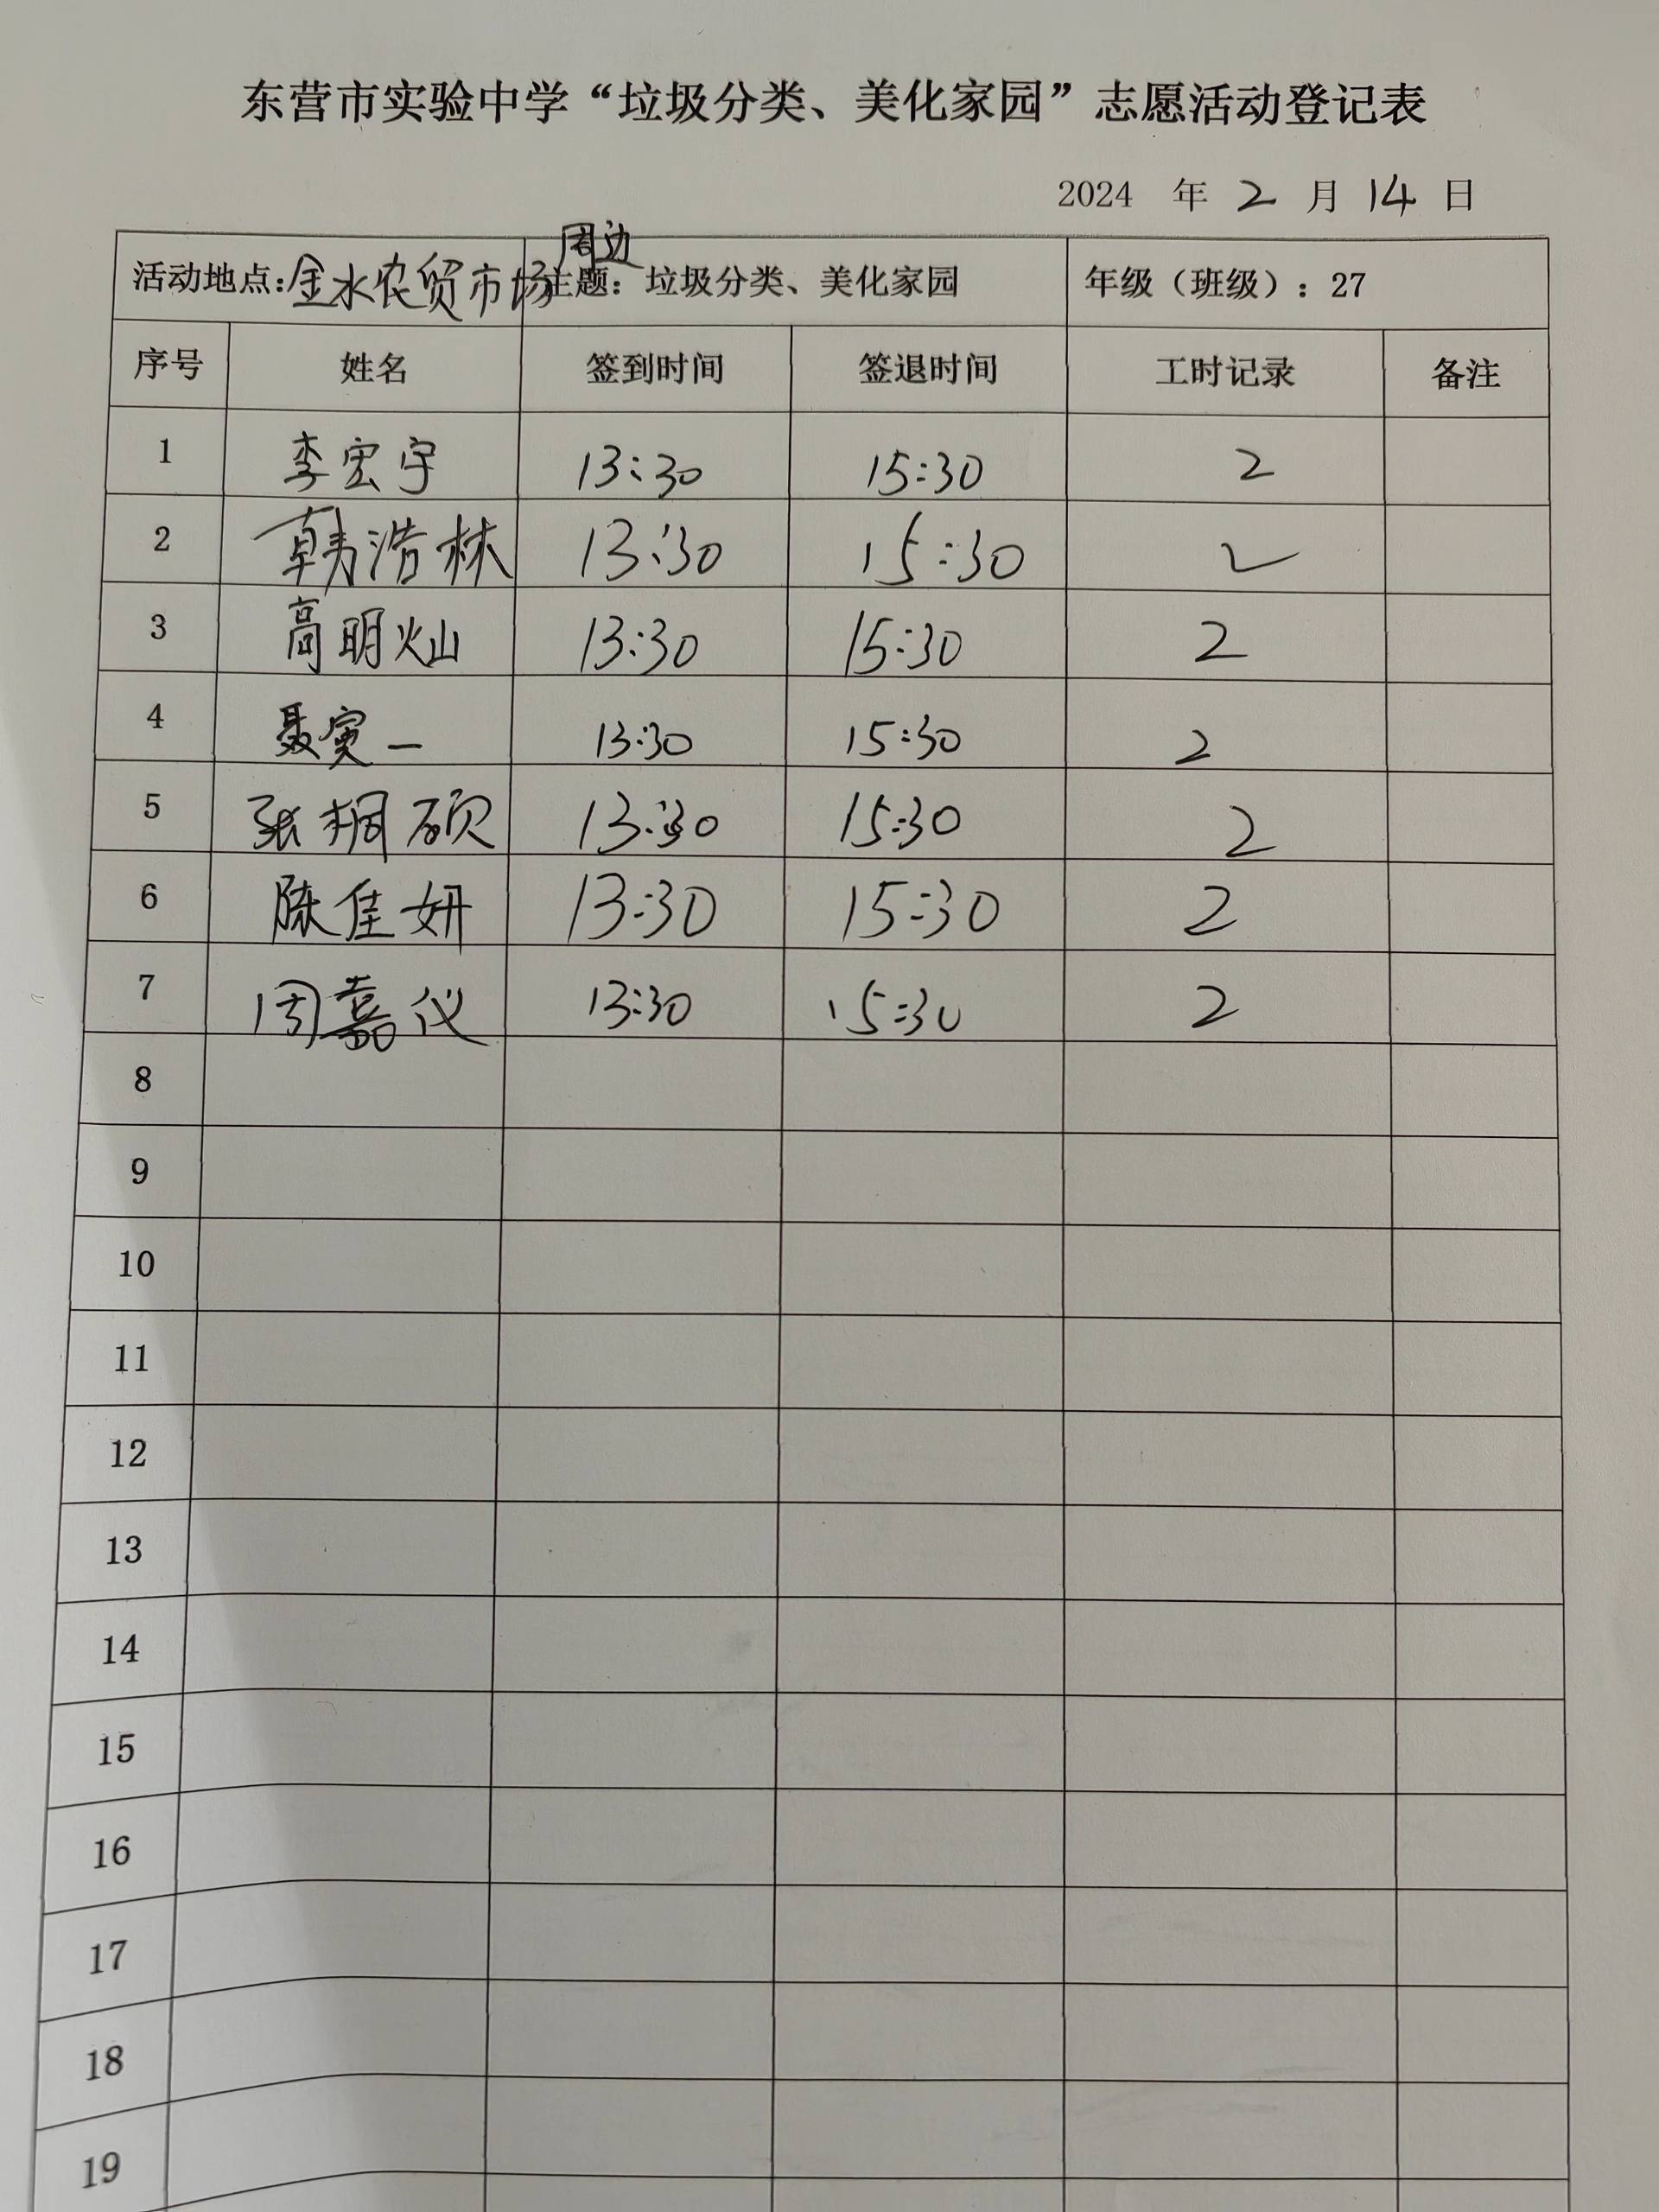 东营市实验中学“垃圾分类、美化家园”志愿活动登记表
2024 年 2 月 14 日
活动地点:金水农贸市场周边 主题：垃圾分类、美化家园 年级（班级）：27
序号 姓名 签到时间 签退时间 工时记录 备注
1 李宏宇 13:30 15:30 2
2 韩浩林 13:30 15:30 2
3 高明灿 13:30 15:30 2
4 聂寅一 13:30 15:30 2
5 张桐硕 13:30 15:30 2
6 陈佳妍 13:30 15:30 2
7 周嘉仪 13:30 15:30 2
8
9
10
11
12
13
14
15
16
17
18
19